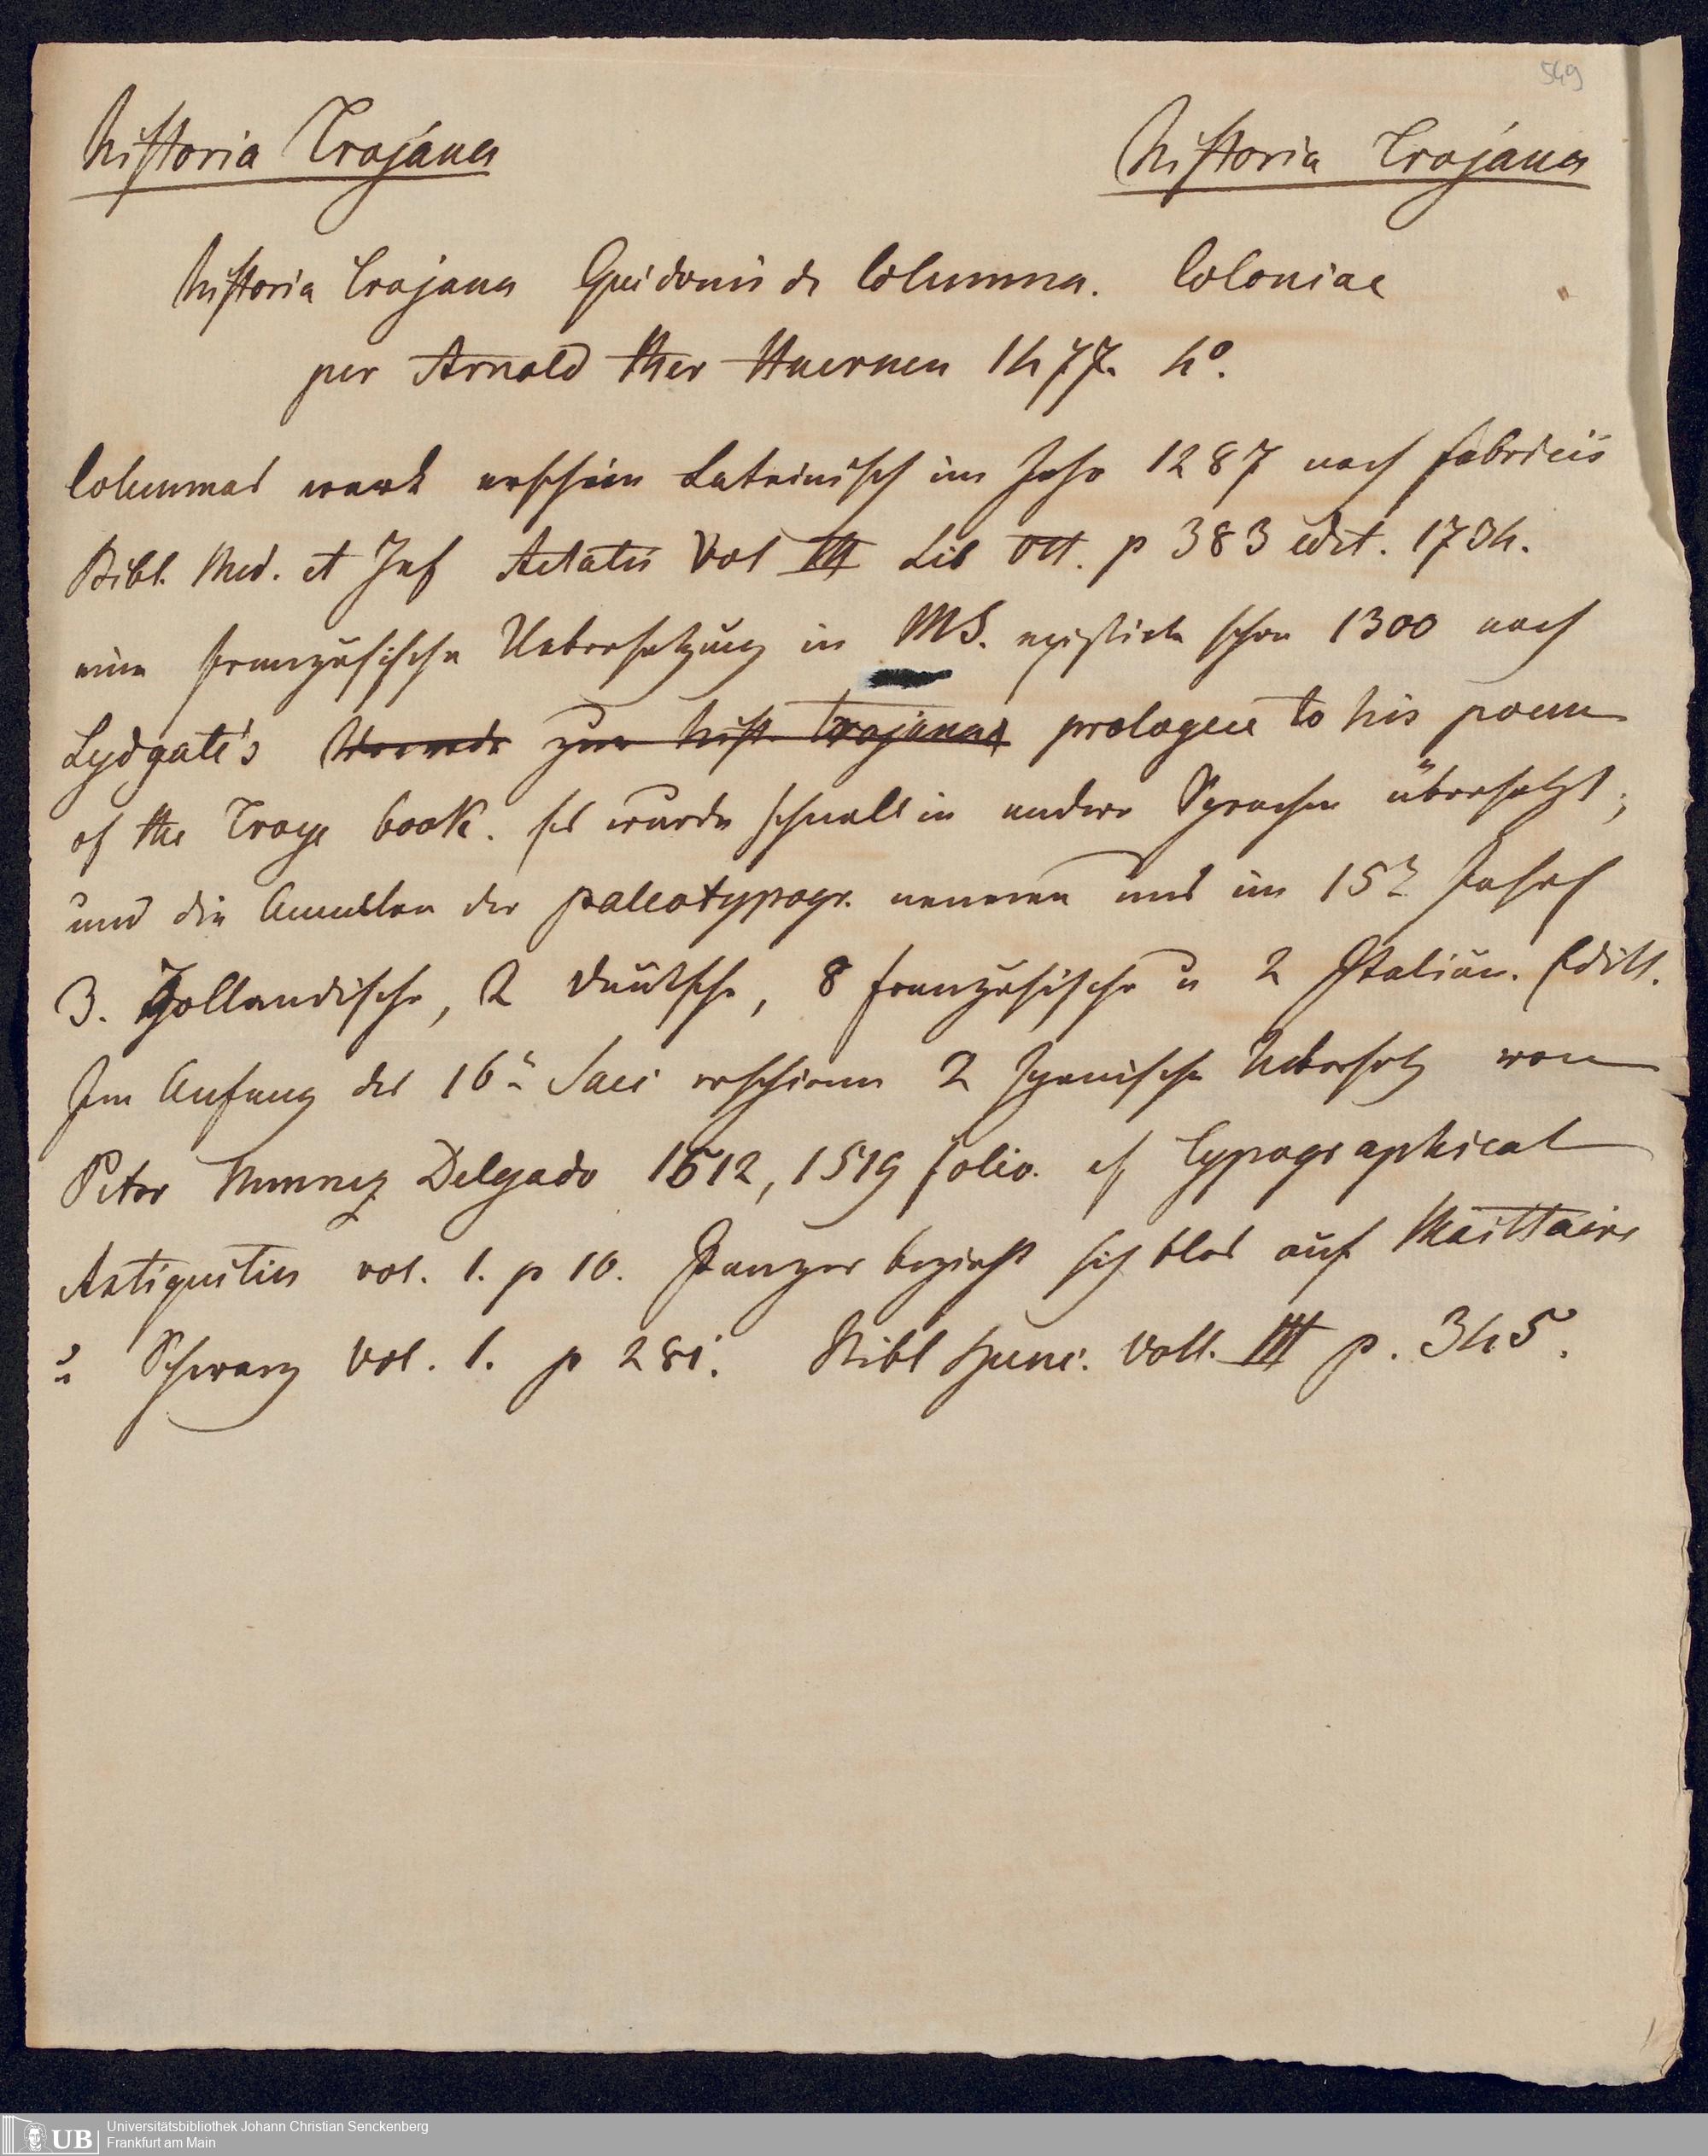 549
Historia Trojana
Historia Trojana
Historia Trojana Guidonis de Columna. Coloniae
per Arnold ther Huernen 1477. 4°.
Columnas werk erschien Lateinisch im Jahr 1287 nach Fabricii
Bibl. Med. et Inf Aetatis Vol III Lib VII. p 383 edit. 1734.
eine französische Uebersetzung in MS. existirte schon 1300 nach
Lydgate's zur Hist. Trojana prologue to his poem
of the Troye book. Es wurde schnell in andere Sprachen übersetzt;
und die Annalen der paleotypogr. nennen uns im 15t Jahrh
3. Hollandische, 2 deutsche, 8 französische u 2 Italiän. Editt.
Im Anfang des 16n Saec erschienen 2 spanische Uebersetz von
Peter Nunnez Delgado 1512, 1519 folio. cf Typographical
Antiquities vol. 1. p 10. Panzer bezieht sich blos auf Maittaire
u Schwarz Vol. 1. p 281. Bibl Spenc. Voll. III p. 345.
UB
Universitätsbibliothek Johann Christian Senckenberg
Frankfurt am Main